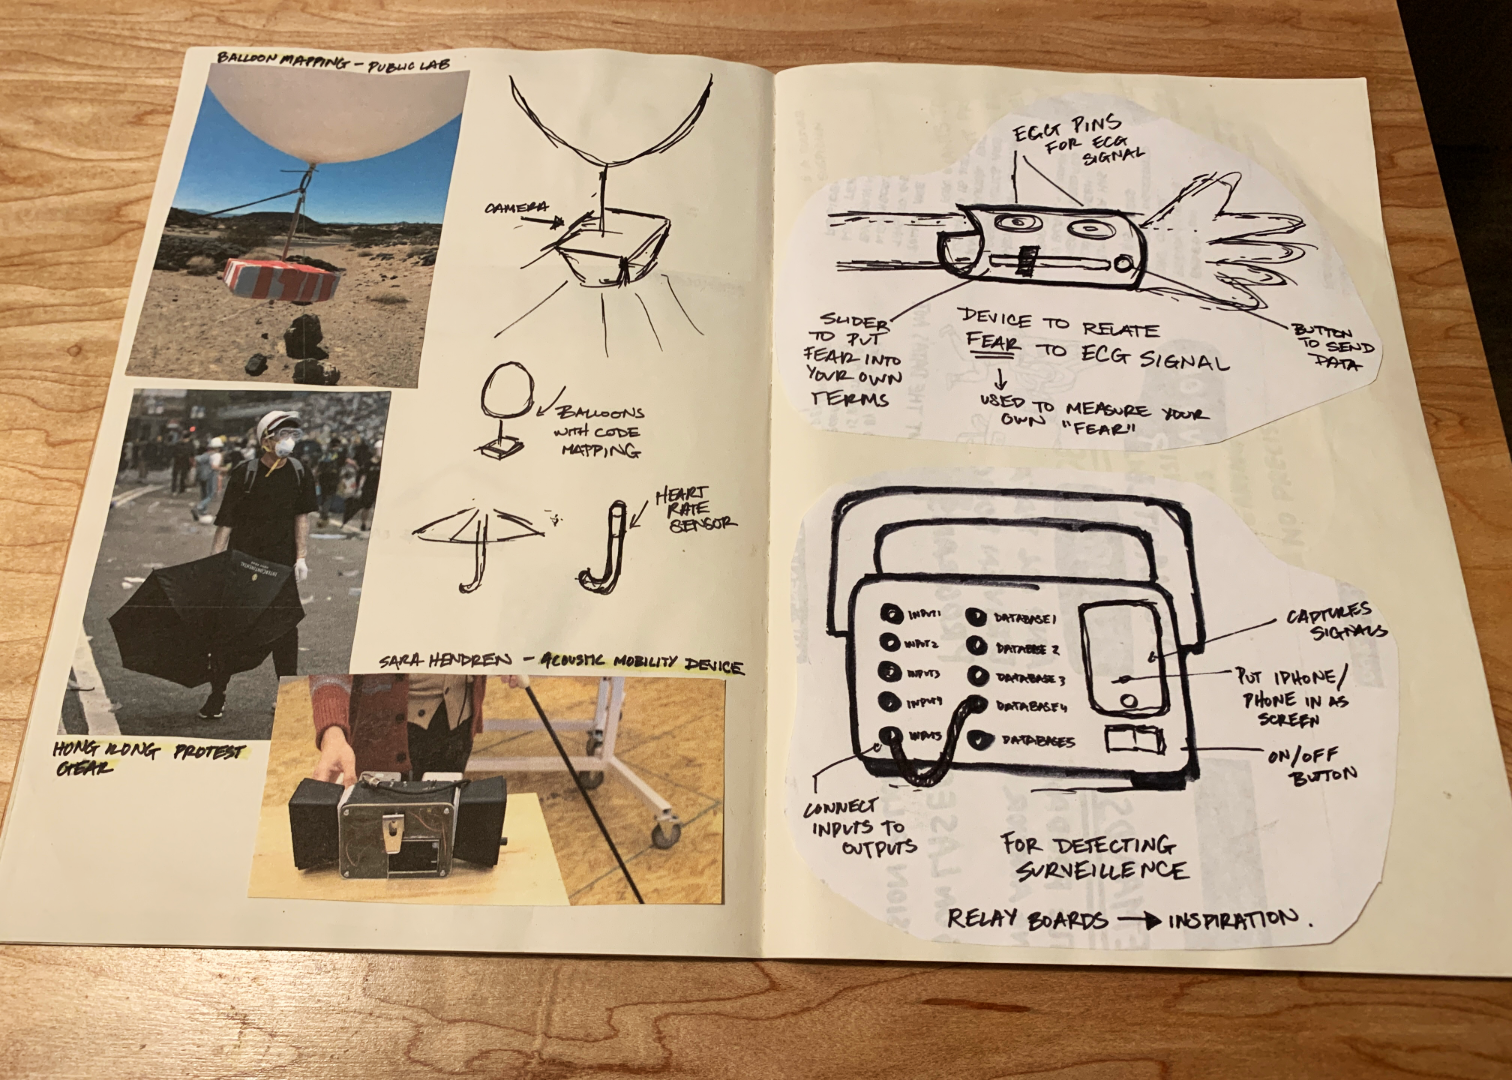 BALLOON MAPPING - PUBLIC LAB
CAMERA
BALLOONS
WITH CODE
MAPPING
HEART
RATE
SENSOR
HONG KONG PROTEST
GEAR
SARA HENDREN - ACOUSTIC MOBILITY DEVICE
EGG PINS
FOR ECG
SIGNAL
SLIDER
TO PUT
FEAR INTO
YOUR OWN
TERMS
DEVICE TO RELATE
FEAR TO ECG SIGNAL
USED TO MEASURE YOUR
OWN "FEAR"
BUTTON
TO SEND
DATA
INPUT1 DATABASE1
INPUT2 DATABASE 2
INPUT3 DATABASE3
INPUT4 DATABASE4
INPUT5 DATABASE5
CAPTURES
SIGNALS
PUT IPHONE/
PHONE IN AS
SCREEN
ON/OFF
BUTTON
CONNECT
INPUTS TO
OUTPUTS
FOR DETECTING
SURVEILLENCE
RELAY BOARDS → INSPIRATION.